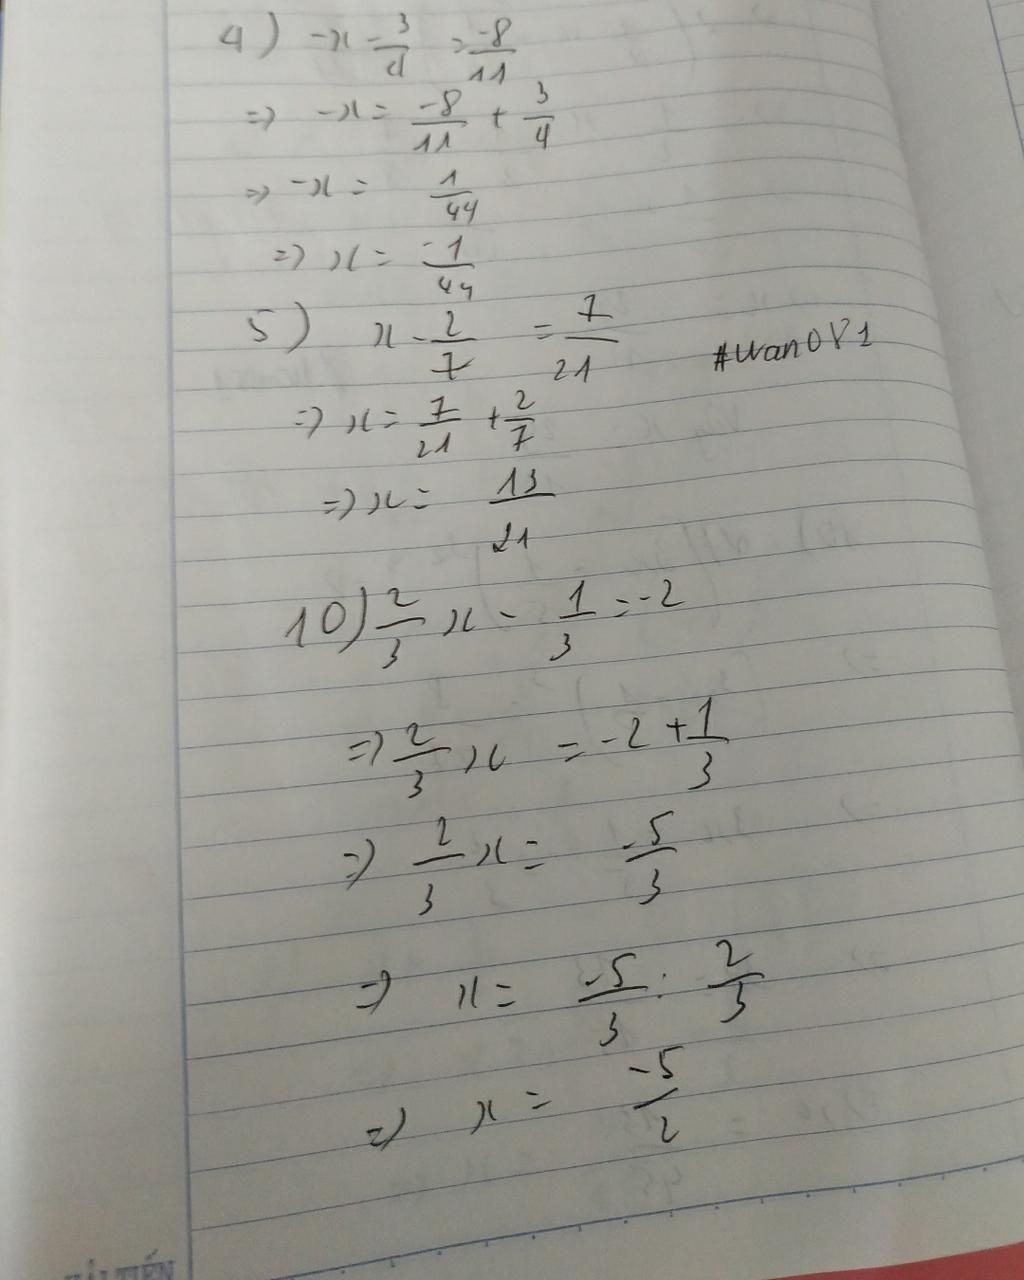 4) -x - 3/4 = -8/11
=> -x = -8/11 + 3/4
=> -x = 1/44
=> x = -1/44
5) x - 2/7 = 7/21
#wanOV1
=> x = 7/21 + 2/7
=> x = 13/21
10) 2/3 x - 1/3 = -2
=> 2/3 x = -2 + 1/3
=> 2/3 x = -5/3
=> x = -5/3 : 2/3
=> x = -5/2